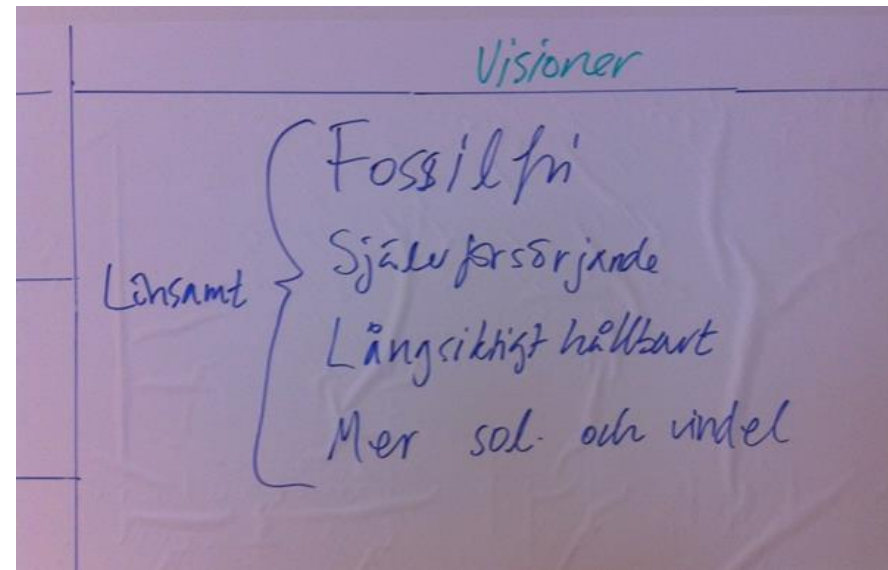 Visioner
Fossilfri
Självförsörjande
Lönsamt
Långsiktigt hållbart
Mer sol- och vindel